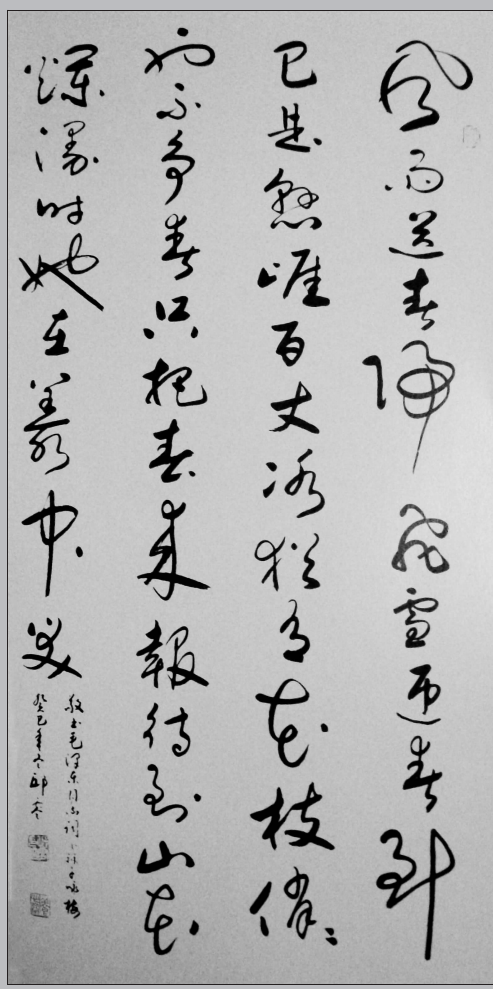 风雨送春归飞雪迎春到
已是悬崖百丈冰犹有花枝俏〻
也不争春只把春来報待到山花
烂漫时她在丛中笑
敬书毛泽东同志词卜算子咏梅
癸巳年冬邱